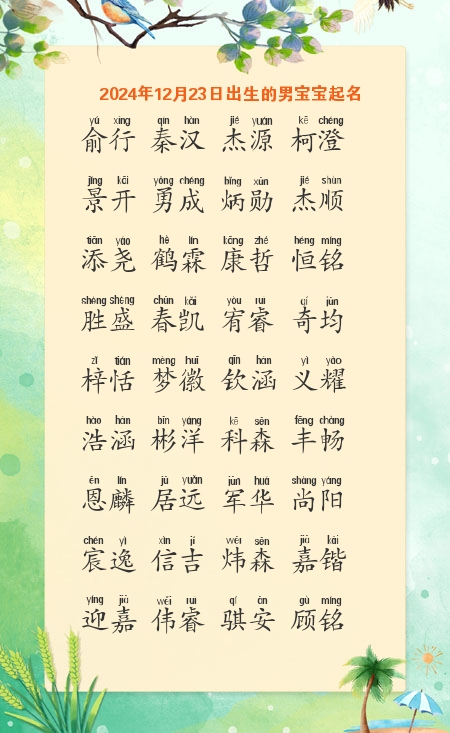 2024年12月23日出生的男宝宝起名
yú xíng qín hàn jié yuán kē chéng
俞行 秦汉 杰源 柯澄
jǐng kāi yǒng chéng bǐng xūn jié shùn
景开 勇成 炳勋 杰顺
tiān yáo hè lín kāng zhé héng míng
添尧 鹤霖 康哲 恒铭
shèng shèng chūn kǎi yòu ruì qí jūn
胜盛 春凯 宥睿 奇均
zǐ tián mèng huī qīn hán yì yào
梓恬 梦徽 钦涵 义耀
hào hán bīn yáng kē sēn fēng chàng
浩涵 彬洋 科森 丰畅
ēn lín jū yuǎn jūn huá shàng yáng
恩麟 居远 军华 尚阳
chén yì xìn jí wěi sēn jiā kǎi
宸逸 信吉 炜森 嘉锴
yíng jiā wěi ruì qí ān gù míng
迎嘉 伟睿 骐安 顾铭